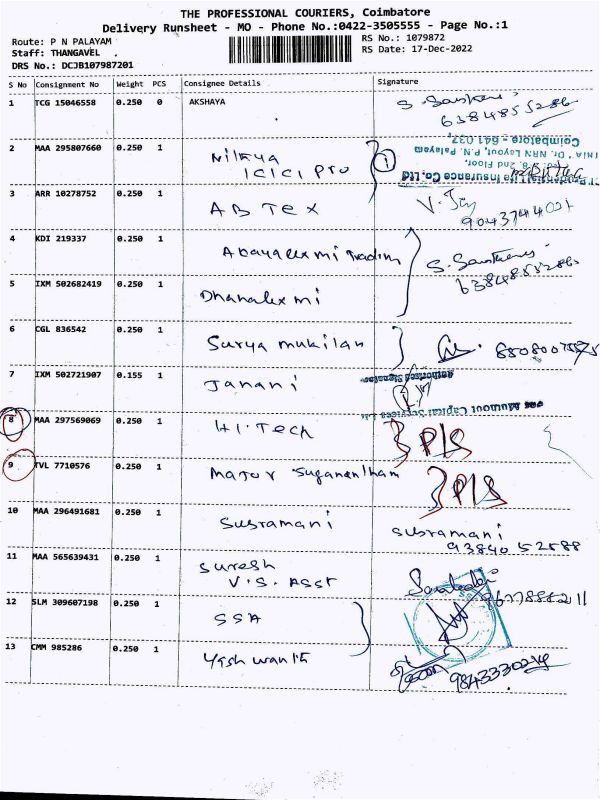 THE PROFESSIONAL COURIERS, Coimbatore
Delivery Runsheet - MO - Phone No.:0422-3505555 - Page No.:1
Route: P N PALAYAM
Staff: THANGAVEL .
DRS No.: DCJB107987201
RS No.: 1079872
RS Date: 17-Dec-2022
S No Consignment No Weight PCS Consignee Details Signature
1 TCG 15046558 0.250 0 AKSHAYA
6384855286
2 MAA 295807660 0.250 1 Nithya ICICI Pro 1
Coimbatore - 641 037.
"TNIA" Dr. NRN Layout, P.N. Palayam
2nd Floor,
Life Insurance Co. Ltd
3 ARR 10278752 0.250 1 AB Tex
9043744001
4 KDI 219337 0.250 1 Abayalexmi Trading
6384855286
5 IXM 502682419 0.250 1 Dhanalexmi
6 CGL 836542 0.250 1 Surya mukilan
7 IXM 502721907 0.155 1 Janani
Authorised Signatory
Capital Services Ltd
8 MAA 297569069 0.250 1 HI.Tech P/S
9 TVL 7710576 0.250 1 Major Suganantham P/S
10 MAA 296491681 0.250 1 Subramani Subramani
9384052588
11 MAA 565639431 0.250 1 Suresh
V.S. ASST
12 SLM 309607198 0.250 1 SSA
13 CMM 985286 0.250 1 Yishwanth